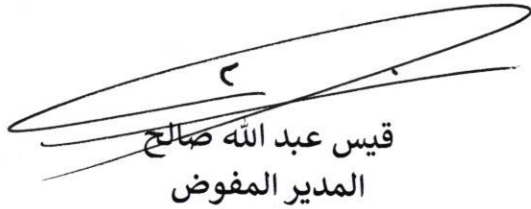 قيس عبد الله صالح
المدير المفوض